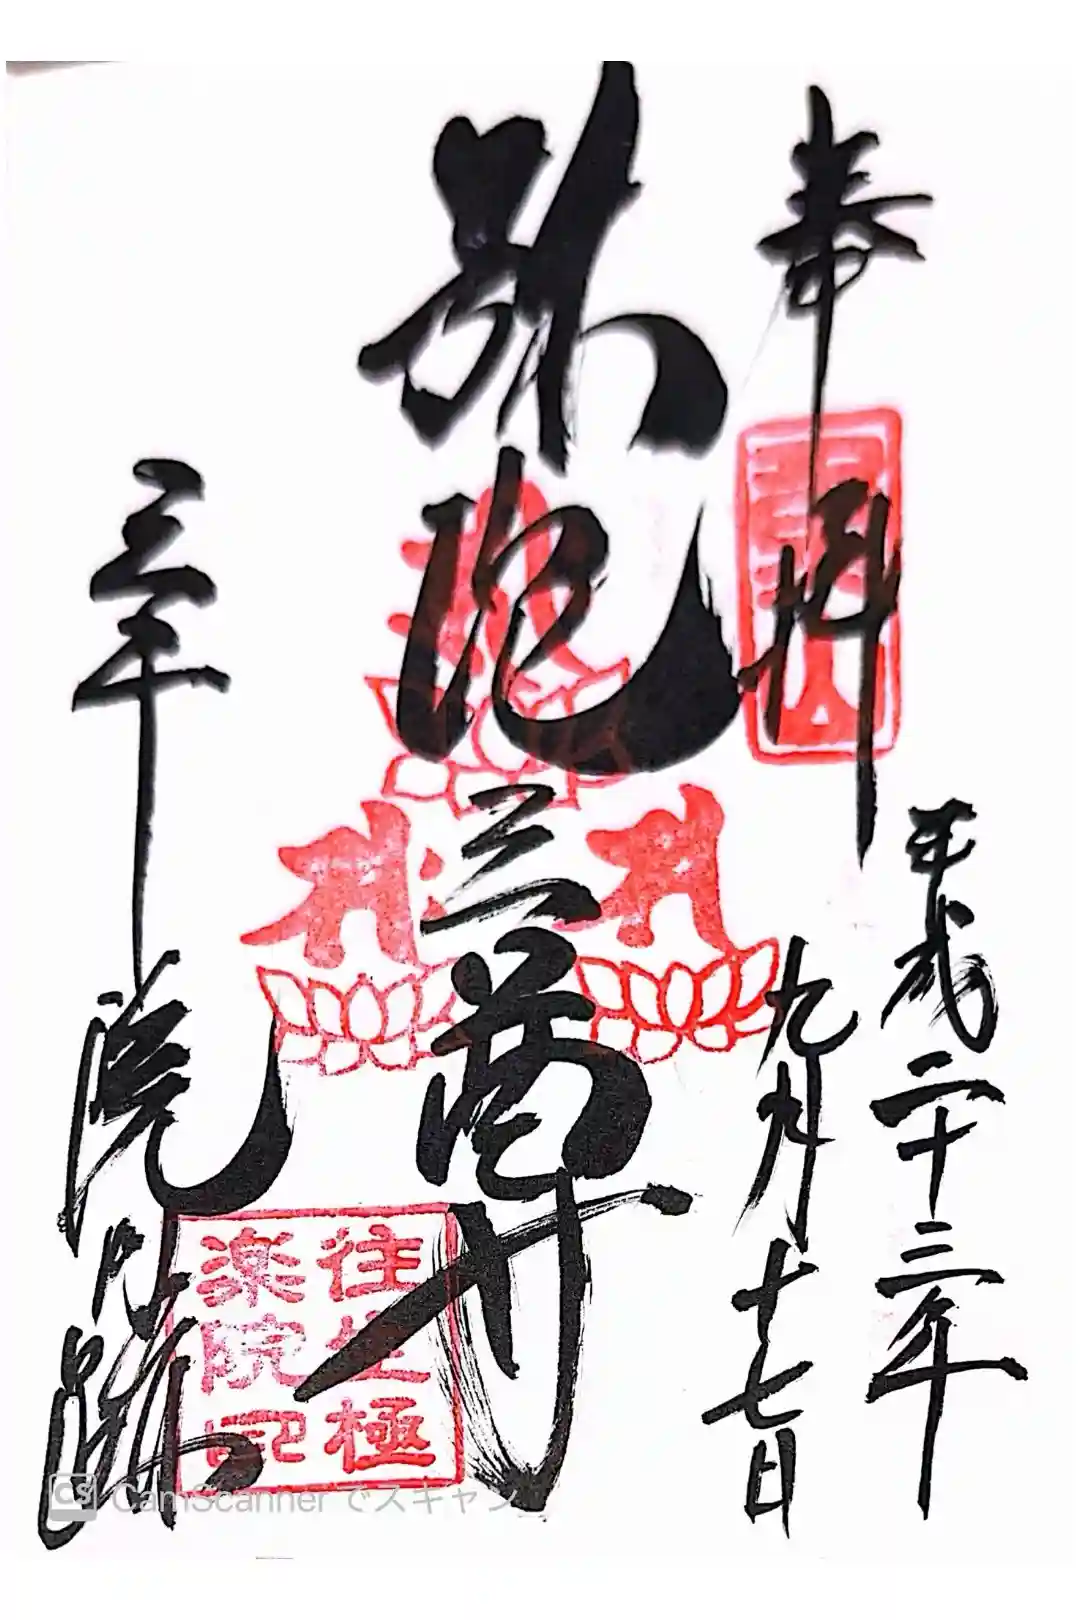 奉拝
平成二十三年
九月十七日
弥陀三尊
三千院門跡
往生極
楽院印
CS CamScanner でスキャン